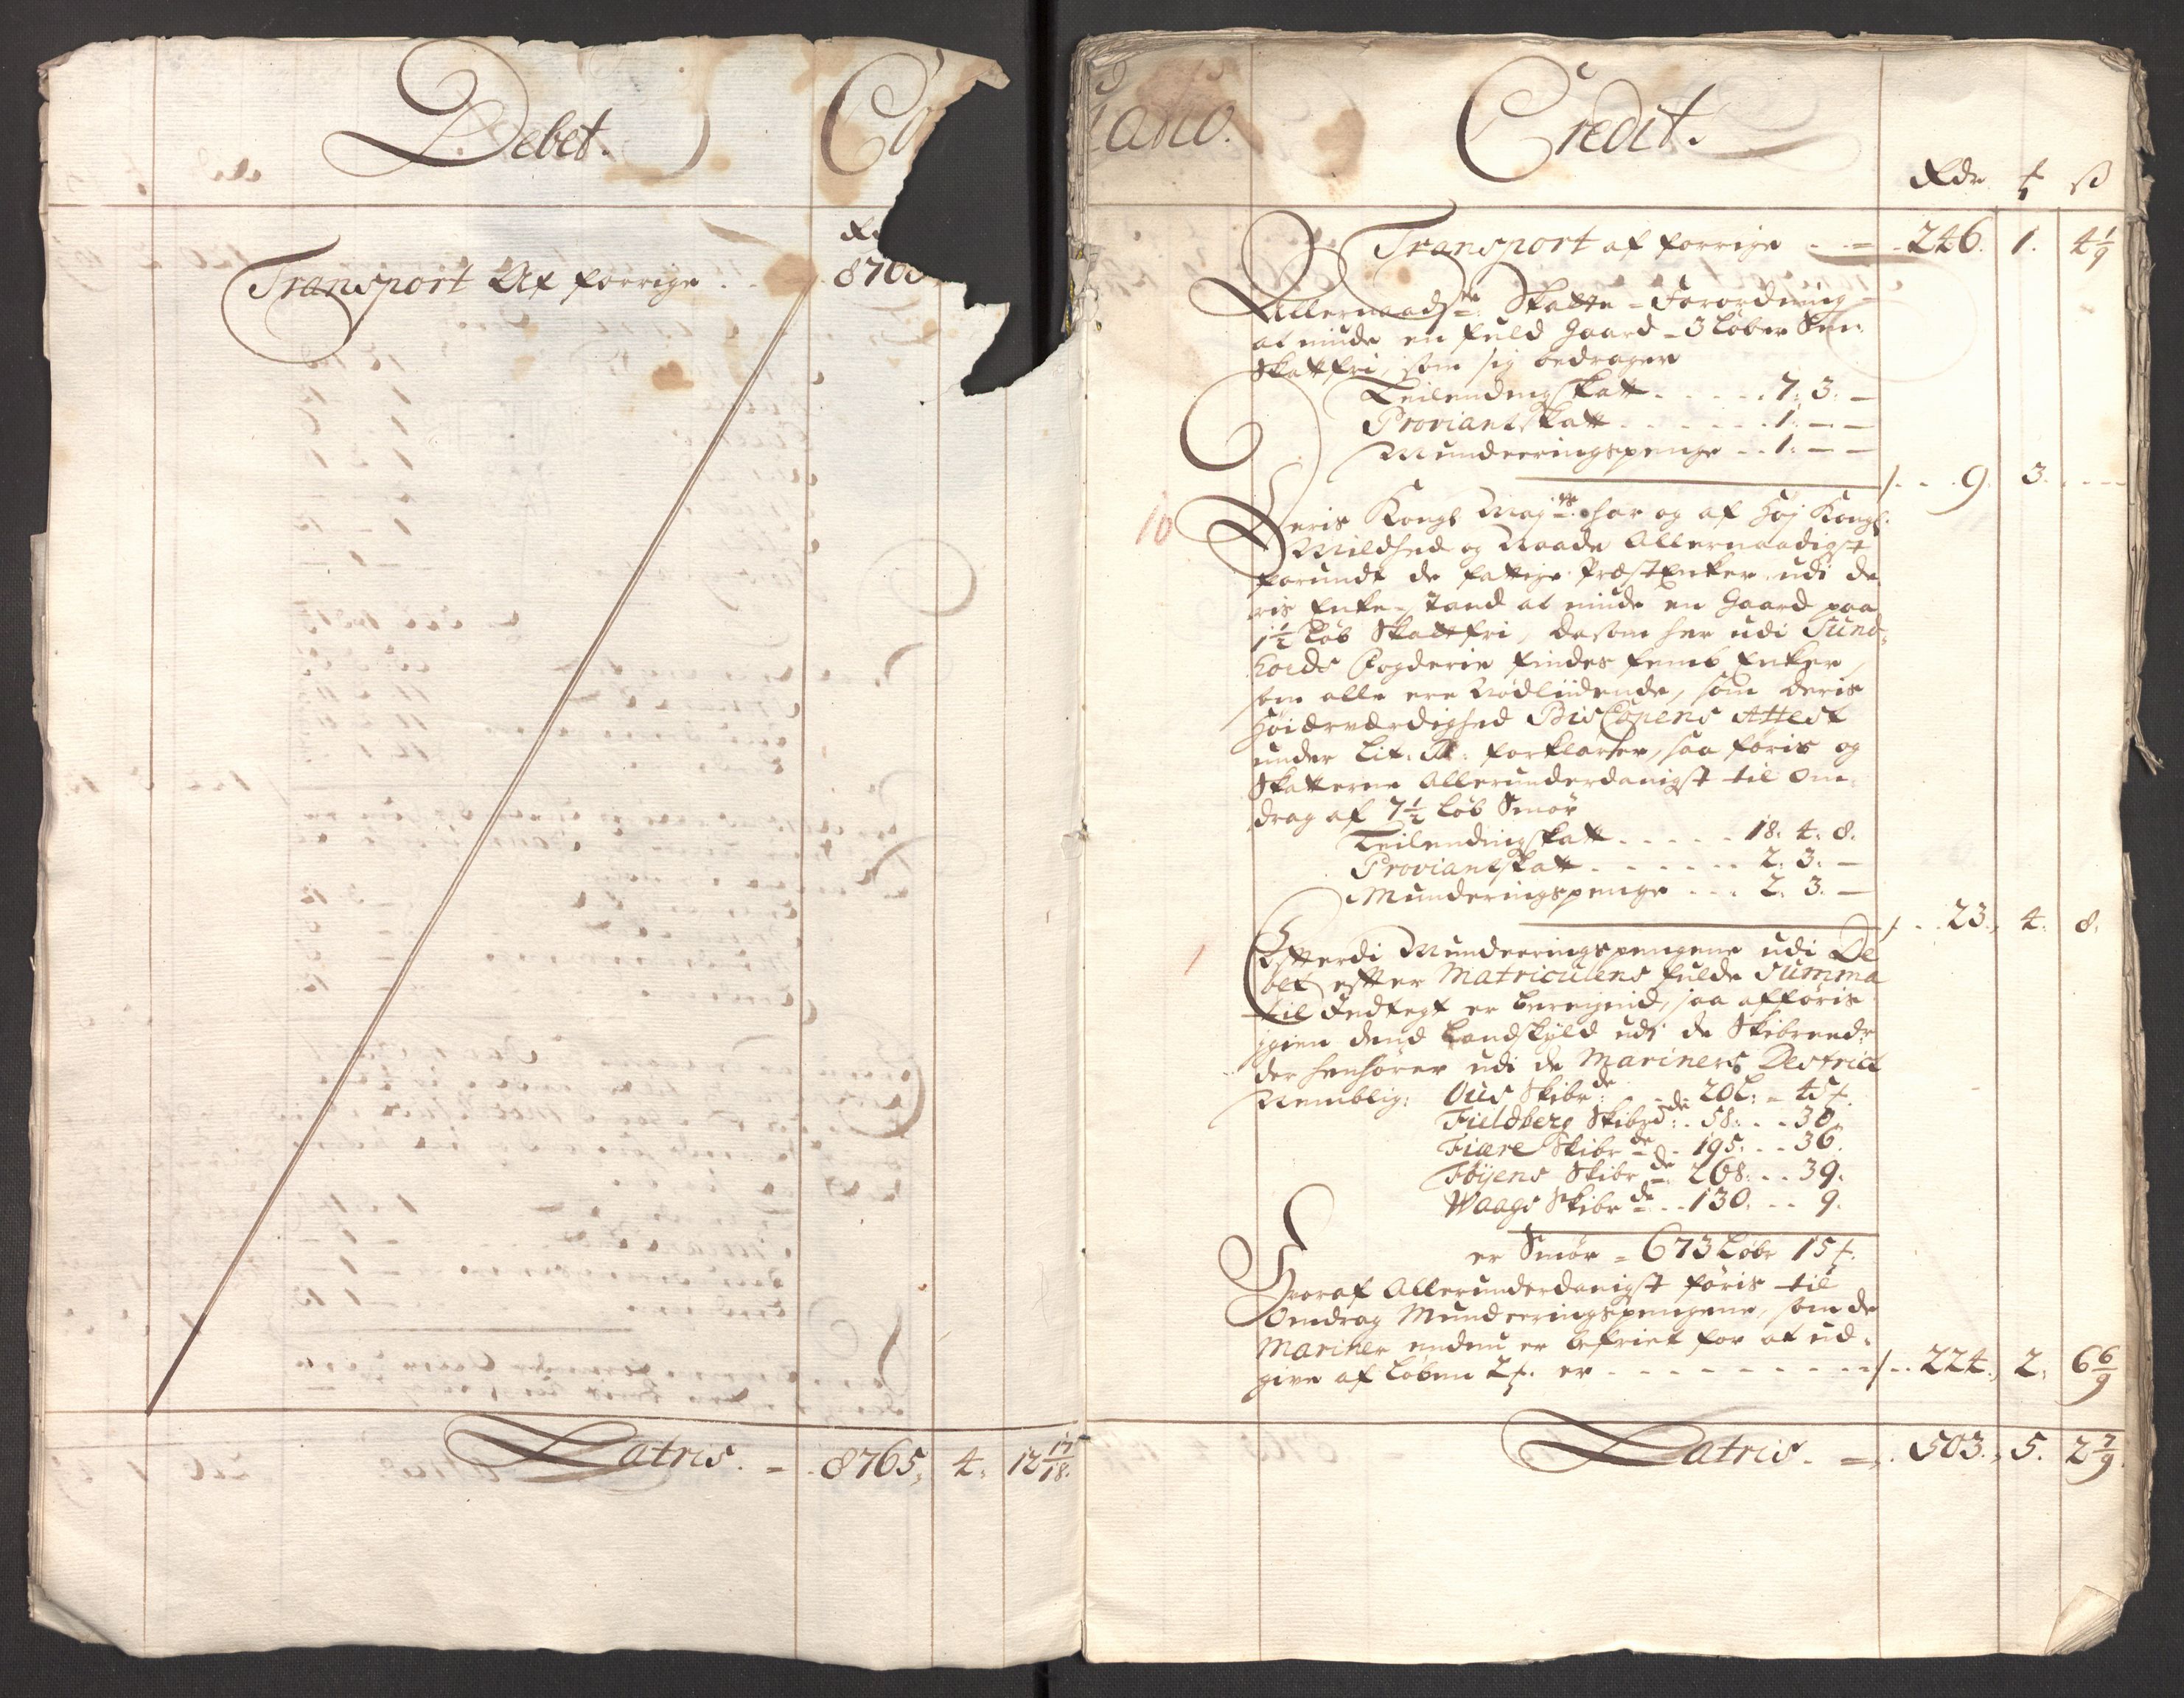 Debet.
Co
Transport Af forrige . . 8765
Latris. = . 8765, 4. 12 17/18.
iano.
Credit.
Rdr ß
Transport af forrige - - = - 246. 1. 4 1/9
Allernaadste: Skatte = Forordning
at niude en fuld Gaard = 3 Løber Smr:
Skattfri, som sig bedrager
Leilendingskatt . . . . . . 7. 3. —
Proviantskatt . . . . . . 1. — —
Munderingspenge . . 1. — —
/. . . 9. 3. . . .
10
Deris Kongl Mayts: har og af høj Kongl:
Mildhed og Naade Allernaadigst
forundt de fattige Præstenker udi de
ris Enke-stand at niude en Gaard paa
1 1/2 Løb Skattfri, da som her udi Sund=
hords Fogderie findes femb Enker,
som alle ere Nødliidende, som deris
Høiærværdighed Biscopens Attest
under Lit: forklarer, saa føris og
Skatterne Allerunderdanigst til Om=
drag af 7 1/2 Løb Smør
Leilendingskatt . . . . . . 18. 4. 8.
Proviantskatt . . . . . . . 2. 3. —
Munderingspenge . . . 2. 3. —
/. . . 23. 4. 8.
/
Efterdi Munderingspengene udi De
bet efter Matriculens fulde Summa
til Indtegt er beregnid, saa afføris
igien dend Landskyld udi de Skibreeder
der henhører udi de Mariners District
Nemblig: Ous Skibrde: . . 201: = 45
Fieldberg Skibrde: . 58: . . 30.
Fiære Skibrde . 195. . . 36.
Føyens Skibrde. 268. . . 39.
Waags Skibrde . . 130. . . 9.
er Smør = 673 Løbr 15
Hvoraf Allerunderdanigst føris til
Omdrag Munderingspengene, som de
Mariner endnu er befriet for at ud=
give af Løben 2 er - - - - - - - - - /. . 224. 2. 6 6/9
Latris. =. 503., 5. 2 7/9